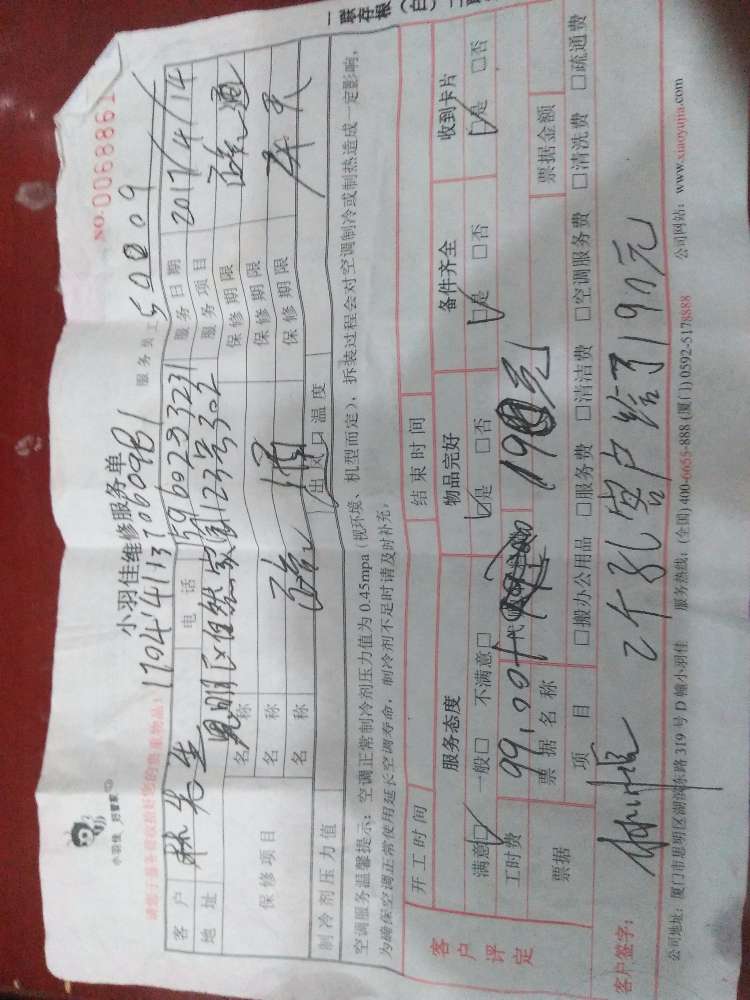 一联存根(白)
NO.0068861
小羽佳 好管家
小羽佳维修服务单
1704141137060981
服务员工 50009
客户 林先生 电话 15960293231 服务日期 2017/4/14
地址 思明区自然家园123号302 服务项目
保修项目 名称 保修期限
名称 保修期限
名称 保修期限
制冷剂压力值 出风口温度
空调服务温馨提示:空调正常制冷剂压力值为0.45mpa(视环境、机型而定),拆装过程会对空调制冷或制热造成一定影响,
为确保空调正常使用延长空调寿命,制冷剂不足时请及时补充。
开工时间 结束时间
客户评定
服务态度 物品完好 备件齐全 收到卡片
满意☑ 一般□ 不满意□ ☑是 □否 ☑是 □否 ☑是 □否
工时费 99.00+ 190元
票据 票据名称 票据金额
项目 □搬办公用品 □服务费 □清洁费 □空调服务费 □清洗费 □疏通费
客户签字: 2个孔客户给了190元
公司地址:厦门市思明区湖滨东路319号D幢小羽佳 服务热线:(全国) 400-6655-888 (厦门) 0592-5178888 公司网站:www.xiaoyujia.com